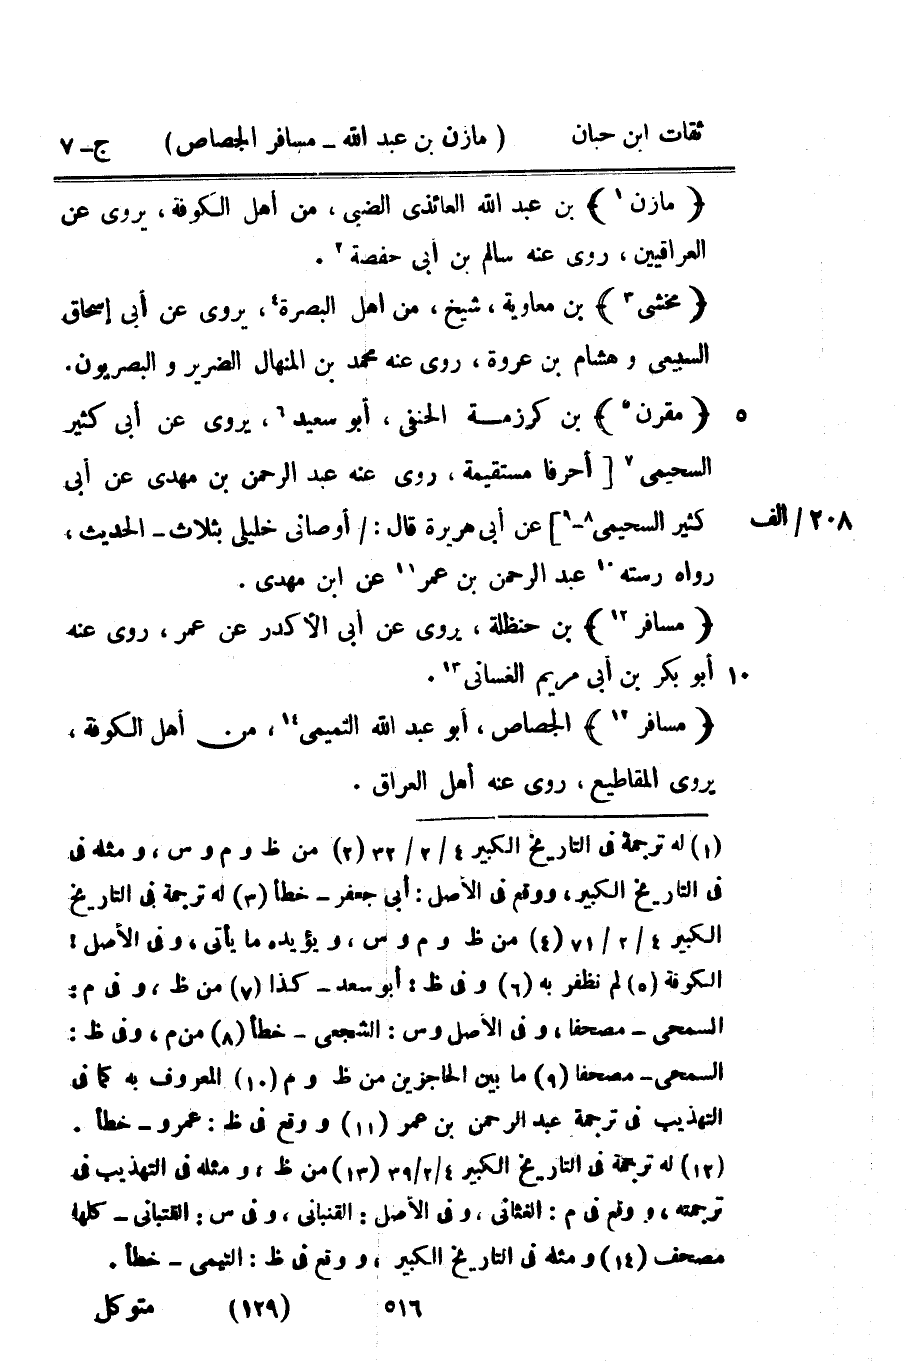 ثقات ابن حبان ( مازن بن عبد الله ـ مسافر الجصاص ) ج ـ ٧
﴿ مازن ١ ﴾ بن عبد الله العائذى الضبى ، من أهل الكوفة ، يروى عن
العراقيين ، روى عنه سالم بن أبى حفصة ٢ .
﴿ مخشى ٣ ﴾ بن معاوية ، شيخ ، من اهل البصرة ٤ ، يروى عن أبى إسحاق
السبيعى و هشام بن عروة ، روى عنه محمد بن المنهال الضرير و البصريون .
﴿ مقرن ٥ ﴾ بن كرزمـــة الحنفى ، أبو سعيد ٦ ، يروى عن أبى كثير ٥
السحيمى ٧ [ أحرفا مستقيمة ، روى عنه عبد الرحمن بن مهدى عن أبى
كثير السحيمى ٨ـ ٩ ] عن أبى هريرة قال : / أوصانى خليلى بثلاث ـ الحديث ، ٢٠٨ / الف
رواه رسته ١٠ عبد الرحمن بن عمر ١١ عن ابن مهدى .
﴿ مسافر ١٢ ﴾ بن حنظلة ، يروى عن أبى الأكدر عن عمر ، روى عنه
أبو بكر بن أبى مريم الغسانى ١٣ . ١٠
﴿ مسافر ١٢ ﴾ الجصاص ، أبو عبد الله التميمى ١٤ ، من أهل الكوفة ،
يروى المقاطيع ، روى عنه أهل العراق .
(١) له ترجمة فى التاريخ الكبير ٤ / ٢ / ٣٢ (٢) من ظ و م و س ، و مثله فى
فى التاريخ الكبير ، ووقع فى الأصل : أبى جعفر ـ خطأ (٣) له ترجمة فى التاريخ
الكبير ٤ / ٢ / ٧١ (٤) من ظ و م و س ، و يؤيده ما يأتى ، و فى الأصل :
الكوفة (٥) لم نظفر به (٦) و فى ظ : أبو سعد ـ كذا (٧) من ظ ، و فى م :
السمحى ـ مصحفا ، و فى الأصل و س : الشجعى ـ خطأ (٨) من م ، وفى ظ :
السمحى ـ مصحفا (٩) ما بين الحاجزين من ظ و م (١٠) المعروف به كما فى
التهذيب فى ترجمة عبد الرحمن بن عمر (١١) و وقع فى ظ : عمرو ـ خطأ .
(١٢) له ترجمة فى التاريخ الكبير ٤ / ٢ / ٣٩ (١٣) من ظ ، و مثله فى التهذيب فى
ترجمته ، و وقع فى م : الغثانى ، و فى الأصل : القنبانى ، و فى س : القتبانى ـ كلها
مصحف (١٤) و مثله فى التاريخ الكبير ، و وقع فى ظ : التيمى ـ خطأ .
٥١٦ (١٢٩) متوكل